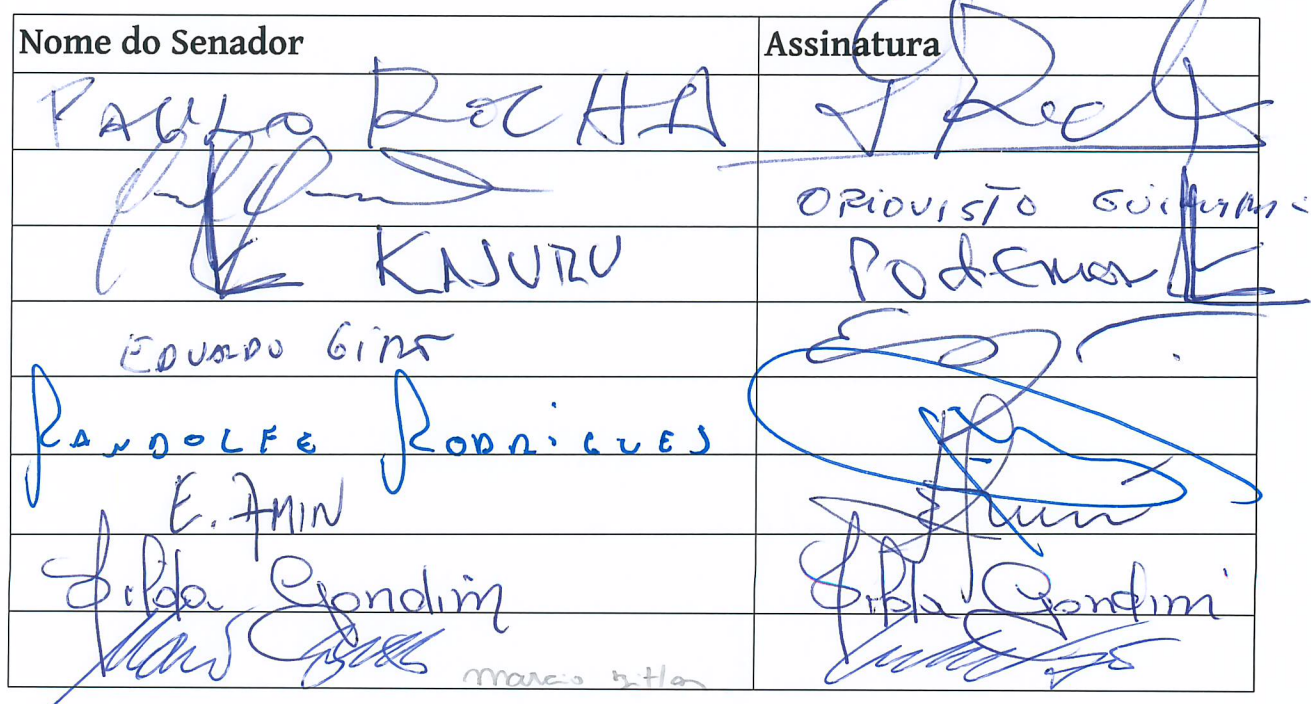 Nome do Senador Assinatura
PAULO ROCHA P Rocha
ORIOVISTO GUIMARÃES
KAJURU Podemos
EDUARDO GIRÃO
RANDOLFE RODRIGUES
E. AMIN Amin
Nilda Gondim Nilda Gondim
marcio bittar